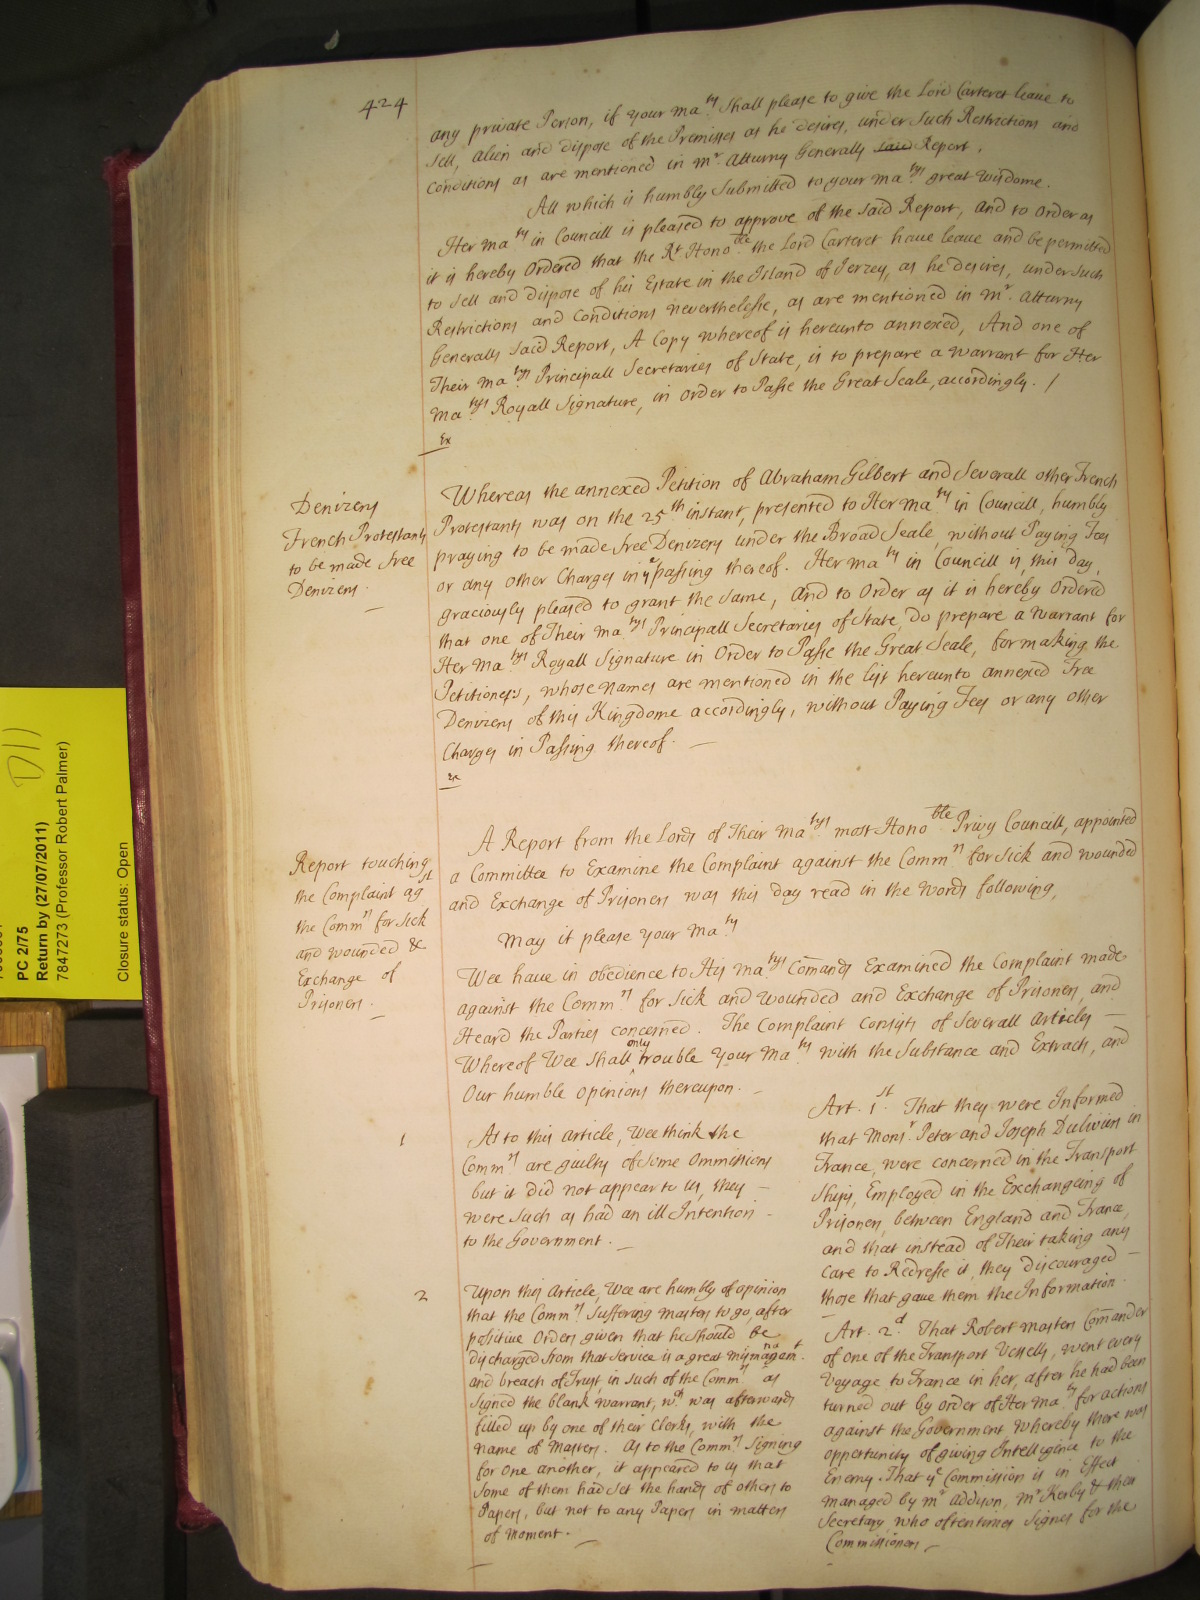 424
any private Person, if your Ma.ty shall please to give the Lord Carteret leave to
sell, alien and dispose of the Premisses as he desires, under such Restrictions and
Conditions as are mentioned in Mr. Atturny Generalls said Report.
All which is humbly Submitted to your Ma.tys great Wisdome.
Her Ma.ty in Councill is pleased to approve of the said Report, and to Order as
it is hereby Ordered that the Rt. Hono.ble the Lord Carteret have leave and be permitted
to sell and dispose of his Estate in the Island of Jerzey, as he desires, under such
Restrictions and Conditions neverthelesse, as are mentioned in Mr. Atturny
Generalls said Report, A Copy whereof is hereunto annexed, And one of
Their Ma.tys Principall Secretaries of State, is to prepare a Warrant for Her
Ma.tys Royall Signature, in order to Passe the Great Seale, accordingly. /
Ex
Denizens
French Protestants
to be made free
Denizens
Whereas the annexed Petition of Abraham Gilbert and Severall other French
Protestants was on the 25th instant, presented to Her Ma.ty in Councill, humbly
praying to be made free Denizens under the Broad Seale, without Paying Fees
or any other Charges in ye passing thereof. Her Ma.ty in Councill is this day,
graciously pleased to grant the same, and to Order as it is hereby Ordered
that one of Their Ma.tys Principall Secretaries of State, Do prepare a Warrant for
Her Ma.tys Royall Signature in Order to Passe the Great Seale, for making the
Petitioners, whose names are mentioned in the list hereunto annexed Free
Denizens of this Kingdome accordingly, without Paying Fees or any other
Charges in Passing thereof.
Ex
Report touching
the Complaint agst
the Comm.rs for sick
and wounded &
Exchange of
Prisoners.
A Report from the Lords of Their Ma.tys most Hono.ble Privy Councill, appointed
a Committee to Examine the Complaint against the Comm.rs for Sick and wounded
and Exchange of Prisoners was this day read in the words following,
May it please Your Ma.ty
Wee have in obedience to His Ma.tys Comands Examined the Complaint made
against the Comm.rs for Sick and Wounded and Exchange of Prisoners, and
Heard the Parties concerned. The Complaint consists of Severall Articles
Whereof Wee shall only trouble Your Ma.ty with the Substance and Extract, and
Our humble Opinions thereupon.
1
As to this Article, Wee think the
Comm.rs are guilty of some Ommissions
but it did not appear to us, they
were such as had an ill Intention
to the Government.
Art. 1st. That they were Informed
that Monsr. Peter and Joseph Dulivier in
France, were concerned in the Transport
Ships, Employed in the Exchangeing of
Prisoners, between England and France,
and that instead of Their taking any
care to Redresse it, they discouraged
those that gave them the Information.
2
Upon this Article, Wee are humbly of opinion
that the Comm.rs suffering Masters to go, after
positive Orders given that he should be
discharged from that service is a great mismanagemt.
and breach of Trust, in such of the Comm.rs as
signed the blank warrant, wch. was afterwards
filled up by one of their Clerks, with the
name of Masters. As to the Comm.rs Signing
for one another, it appeared to us that
some of them had set the hands of others to
Papers, but not to any Papers in matters
of Moment.
Art. 2d. That Robert Masters Comander
of one of the Transport Vessells, went every
Voyage to France in her, after he had been
turned out by Order of Her Ma.ty for actions
against the Government whereby there was
opportunity of giving Intelligence to the
Enemy. That ye Commission is in Effect
managed by Mr. Addison, Mr. Kerby & their
Secretary who oftentimes signes for the
Commissioners
PC 2/75
Return by (27/07/2011)
7847273 (Professor Robert Palmer)
Closure status: Open